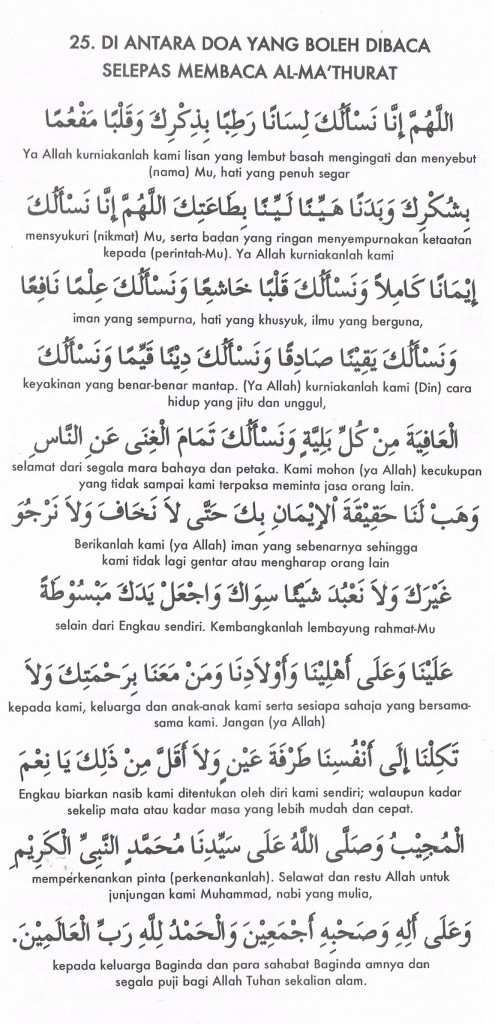 25. DI ANTARA DOA YANG BOLEH DIBACA
SELEPAS MEMBACA AL-MA'THURAT
اللَّهُمَّ إِنَّا نَسْأَلُكَ لِسَانًا رَطِبًا بِذِكْرِكَ وَقَلْبًا مَفْعُمًا
Ya Allah kurniakanlah kami lisan yang lembut basah mengingati dan menyebut
(nama) Mu, hati yang penuh segar
بِشُكْرِكَ وَبَدَنًا هَيِّنًا لَيِّنًا بِطَاعَتِكَ اللَّهُمَّ إِنَّا نَسْأَلُكَ
mensyukuri (nikmat) Mu, serta badan yang ringan menyempurnakan ketaatan
kepada (perintah-Mu). Ya Allah kurniakanlah kami
إِيْمَانًا كَامِلاً وَنَسْأَلُكَ قَلْبًا خَاشِعًا وَنَسْأَلُكَ عِلْمًا نَافِعًا
iman yang sempurna, hati yang khusyuk, ilmu yang berguna,
وَنَسْأَلُكَ يَقِيْنًا صَادِقًا وَنَسْأَلُكَ دِيْنًا قَيِّمًا وَنَسْأَلُكَ
keyakinan yang benar-benar mantap. (Ya Allah) kurniakanlah kami (Din) cara
hidup yang jitu dan unggul,
الْعَافِيَةَ مِنْ كُلِّ بَلِيَّةٍ وَنَسْأَلُكَ تَمَامَ الْغِنَى عَنِ النَّاسِ
selamat dari segala mara bahaya dan petaka. Kami mohon (ya Allah) kecukupan
yang tidak sampai kami terpaksa meminta jasa orang lain.
وَهَبْ لَنَا حَقِيْقَةَ الْإِيْمَانِ بِكَ حَتَّى لاَ نَخَافَ وَلاَ نَرْجُوَ
Berikanlah kami (ya Allah) iman yang sebenarnya sehingga
kami tidak lagi gentar atau mengharap orang lain
غَيْرَكَ وَلاَ نَعْبُدَ شَيْئًا سِوَاكَ وَاجْعَلْ يَدَكَ مَبْسُوْطَةً
selain dari Engkau sendiri. Kembangkanlah lembayung rahmat-Mu
عَلَيْنَا وَعَلَى أَهْلِيْنَا وَأَوْلاَدِنَا وَمَنْ مَعَنَا بِرَحْمَتِكَ وَلاَ
kepada kami, keluarga dan anak-anak kami serta sesiapa sahaja yang bersama-
sama kami. Jangan (ya Allah)
تَكِلْنَا إِلَى أَنْفُسِنَا طَرْفَةَ عَيْنٍ وَلاَ أَقَلَّ مِنْ ذَلِكَ يَا نِعْمَ
Engkau biarkan nasib kami ditentukan oleh diri kami sendiri; walaupun kadar
sekelip mata atau kadar masa yang lebih mudah dan cepat.
الْمُجِيْبُ وَصَلَّى اللَّهُ عَلَى سَيِّدِنَا مُحَمَّدٍ النَّبِيِّ الْكَرِيْمِ
memperkenankan pinta (perkenankanlah). Selawat dan restu Allah untuk
junjungan kami Muhammad, nabi yang mulia,
وَعَلَى أَلِهِ وَصَحْبِهِ أَجْمَعِيْنَ وَالْحَمْدُ لِلَّهِ رَبِّ الْعَالَمِيْنَ.
kepada keluarga Baginda dan para sahabat Baginda amnya dan
segala puji bagi Allah Tuhan sekalian alam.